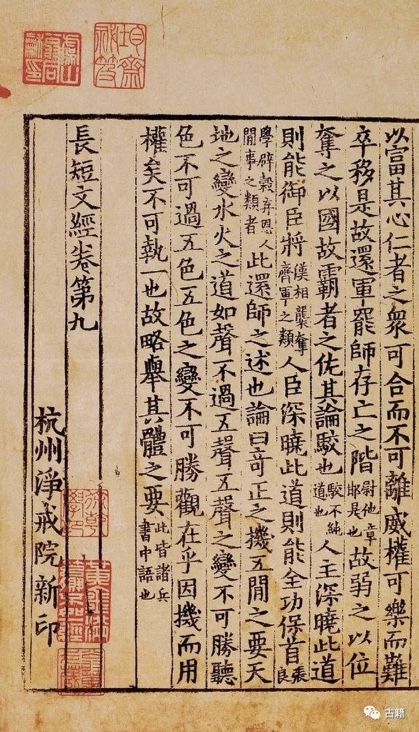 以富其心仁者之衆可合而不可離威權可樂而難
卒移是故還軍罷師存亡之階尉他章邯是也故弱之以位
奪之以國故霸者之佐其論駁也駁不純道也人主深曉此道
則能御臣將漢相襲奪齊軍之類人臣深曉此道則能全功保首張良
學辟穀弃人閒事之類者此還師之述也論曰奇正之機五閒之要天
地之變水火之道如聲不過五聲五聲之變不可勝聽
色不可過五色五色之變不可勝觀在乎因機而用
權矣不可執一也故略舉其體之要此皆諸兵書中語也
長短文經卷第九
杭州淨戒院新印
古籍